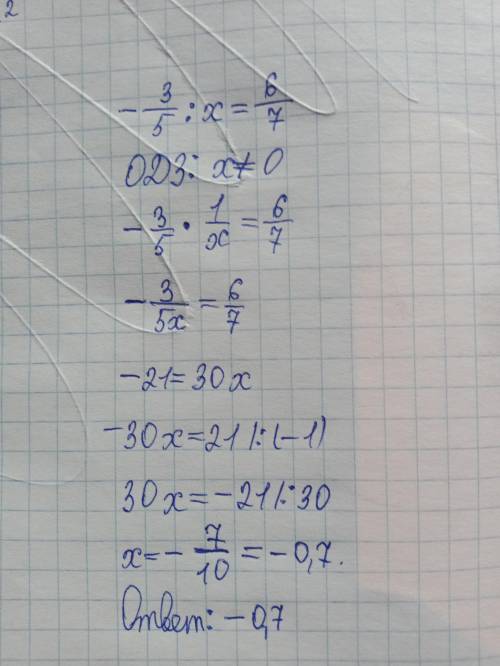 2
-3/5 : x = 6/7
ОДЗ: x ≠ 0
-3/5 · 1/x = 6/7
-3/5x = 6/7
-21 = 30x
-30x = 21 |:(-1)
30x = -21 |:30
x = -7/10 = -0,7.
Ответ: -0,7